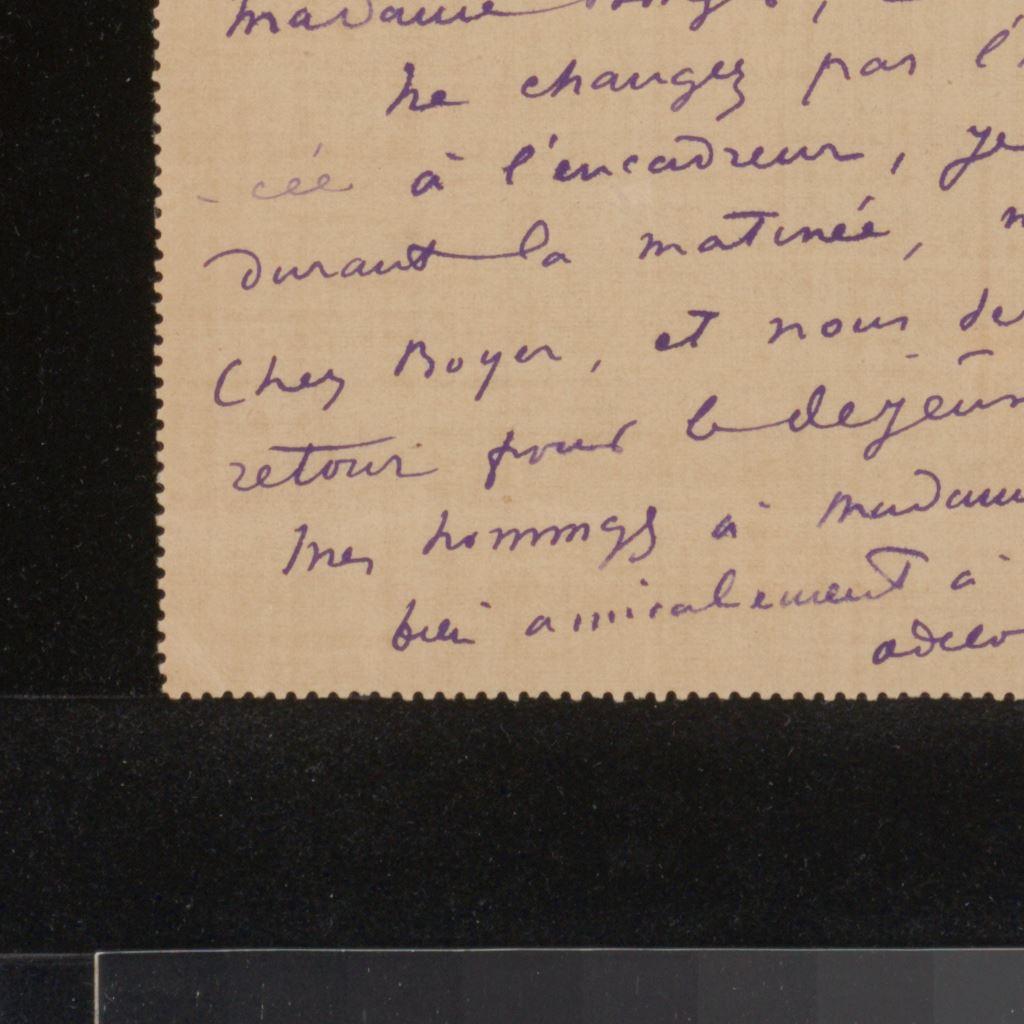 madame
ne changez pas l'
-cée à l'encadreur, je
durant la matinée,
Chez Boyer, et nous de
retour pour le dejeun
Mes hommages à madam
bien amicalement à